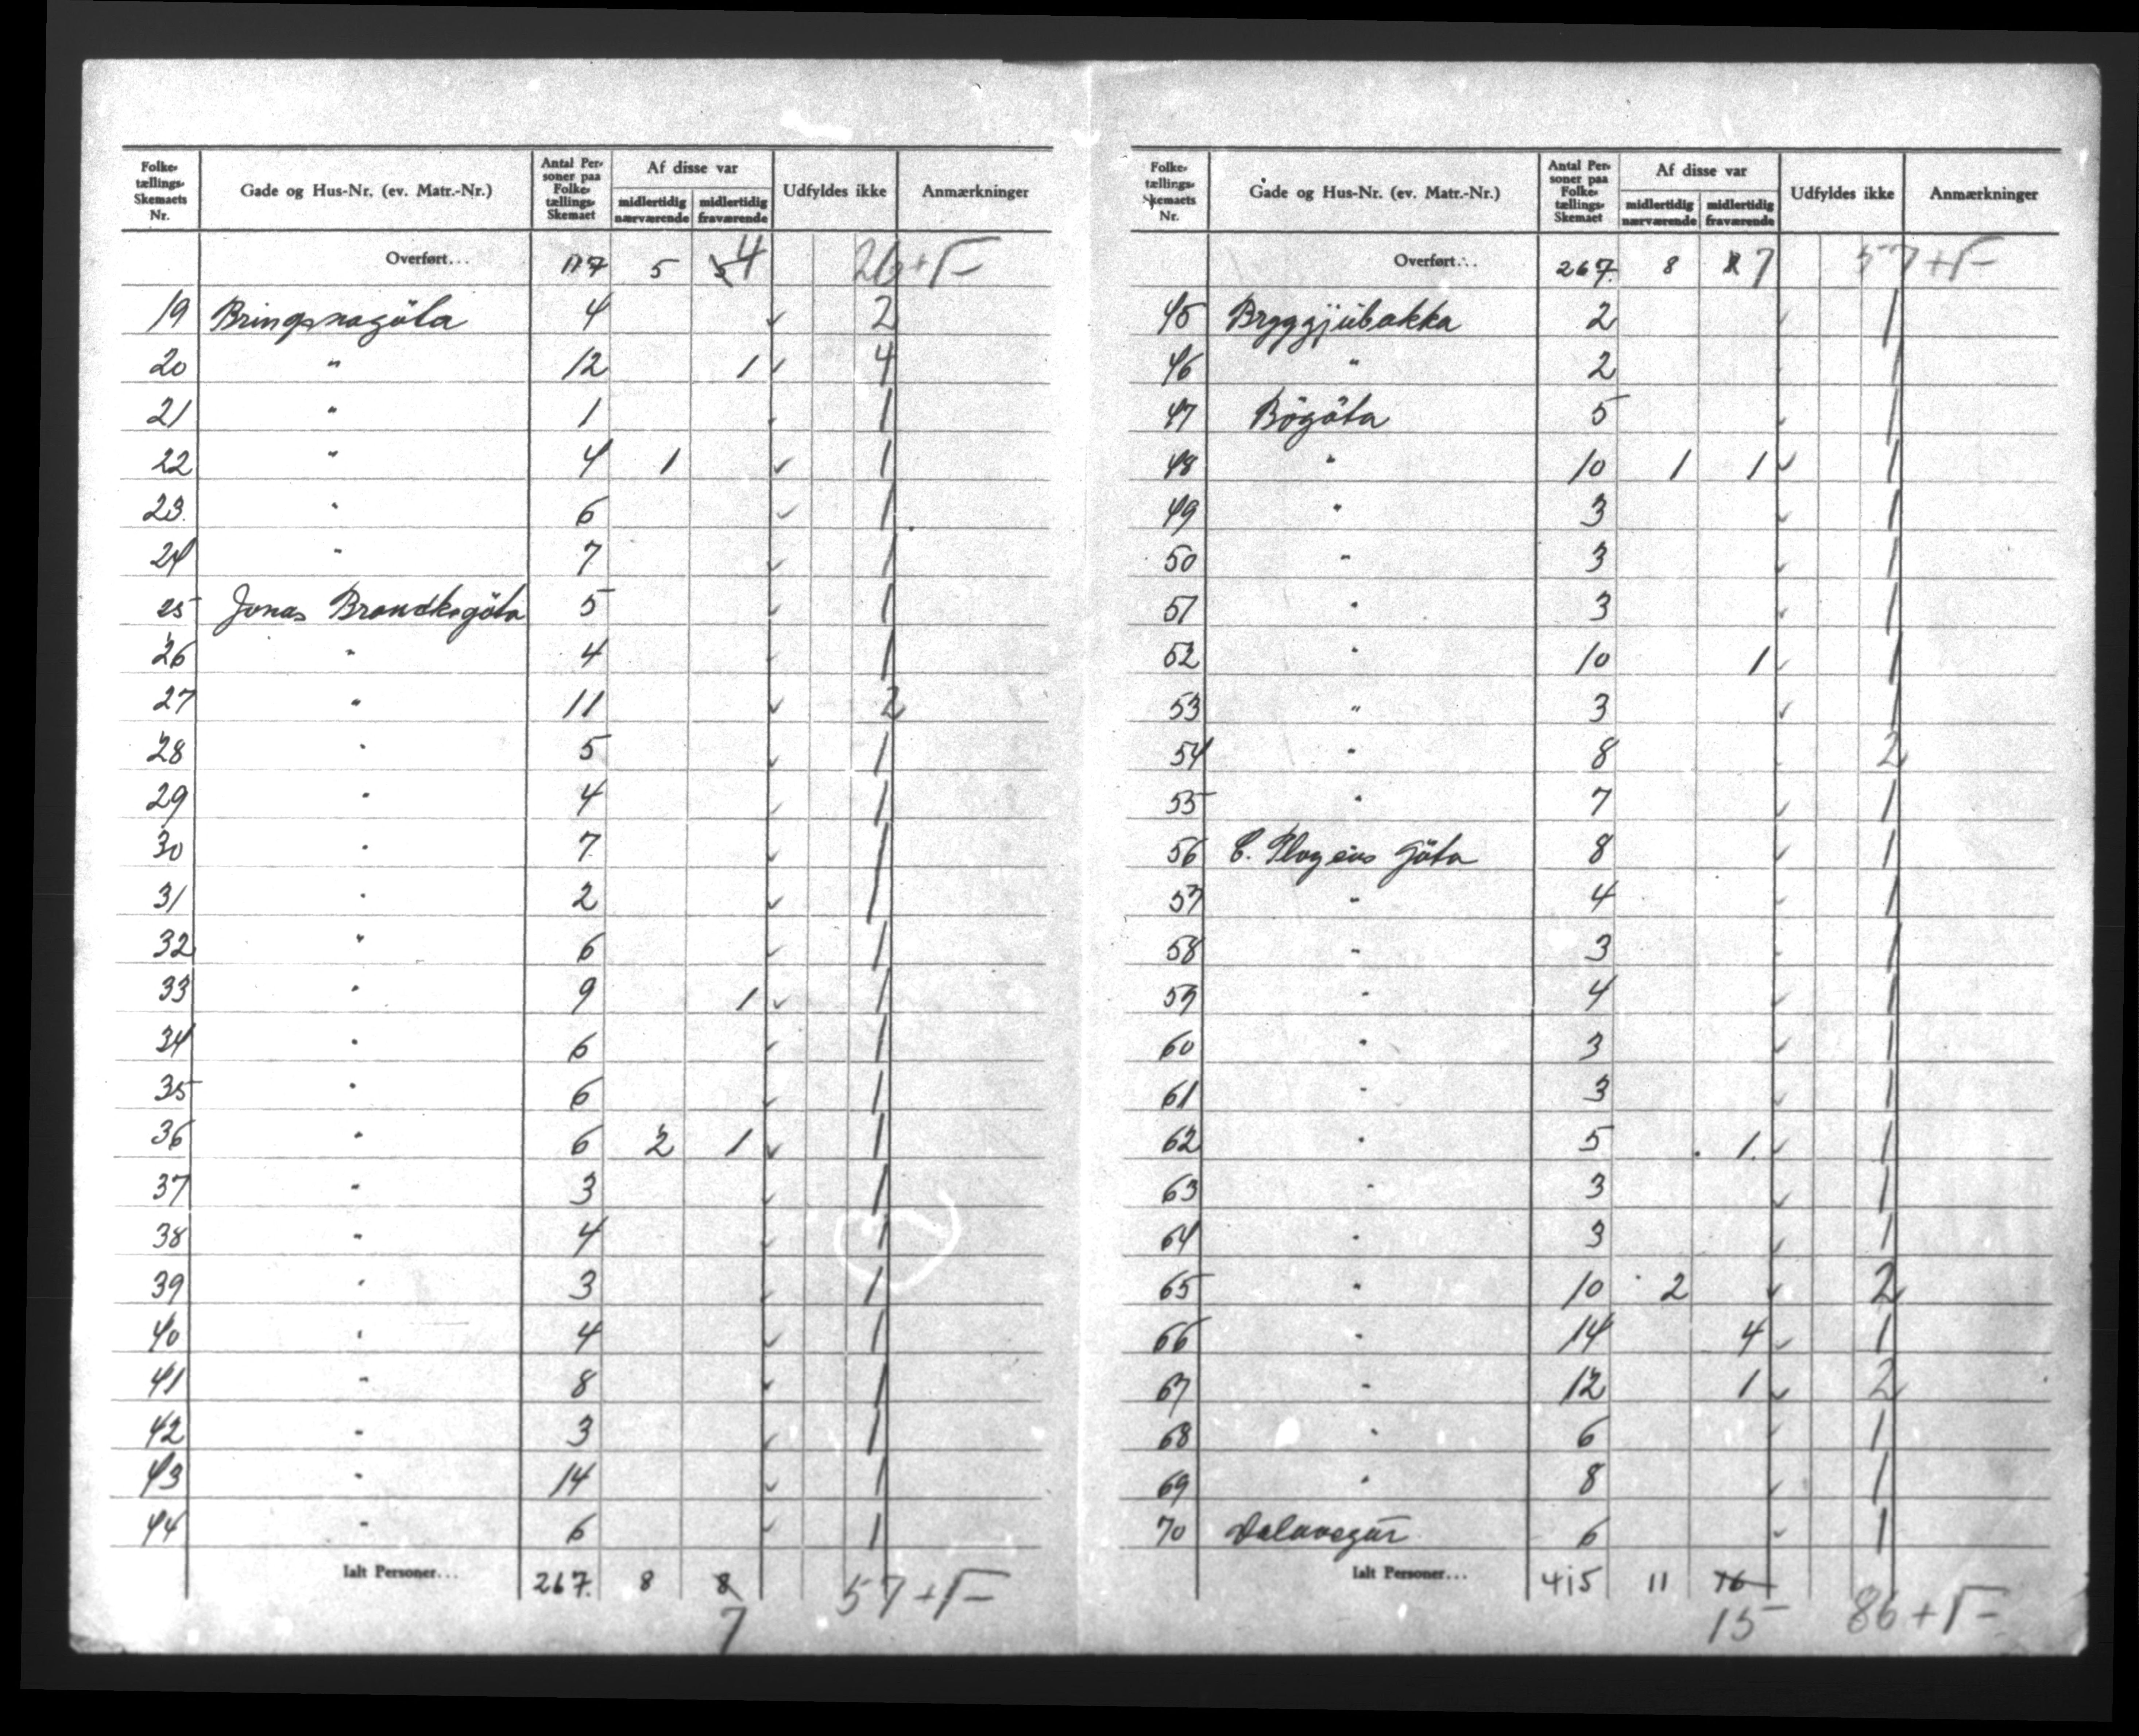 Folke- tællings- Skemaets Nr. | Gade og Hus-Nr. (ev. Matr.-Nr.) | Antal Per- soner paa Folke- tællings- Skemaet | Af disse var midlertidig nærværende | midlertidig fraværende | Udfyldes ikke | Anmærkninger
Overført... 117 5 5 4 26+5-
19 Bringsnagöta 4 ✓ 2
20 " 12 1 ✓ 4
21 " 1 ✓ 1
22 " 4 1 ✓ 1
23. " 6 ✓ 1
24 " 7 ✓ 1
25 Jonas Broncksgöta 5 ✓ 1
26 " 4 ✓ 1
27 " 11 ✓ 2
28 " 5 ✓ 1
29 " 4 ✓ 1
30 " 7 ✓ 1
31 " 2 ✓ 1
32 " 6 ✓ 1
33 " 9 1 ✓ 1
34 " 6 ✓ 1
35 " 6 ✓ 1
36 " 6 2 1 ✓ 1
37 " 3 ✓ 1
38 " 4 ✓ 1
39 " 3 ✓ 1
40 " 4 ✓ 1
41 " 8 ✓ 1
42 " 3 ✓ 1
43 " 14 ✓ 1
44 " 6 ✓ 1
Ialt Personer... 267. 8 8 57+5-
7
Folke- tællings- Skemaets Nr. | Gade og Hus-Nr. (ev. Matr.-Nr.) | Antal Per- soner paa Folke- tællings- Skemaet | Af disse var midlertidig nærværende | midlertidig fraværende | Udfyldes ikke | Anmærkninger
Overført... 267. 8 8 7 57+5-
45 Bryggjubakka 2 ✓ 1
46 " 2 ✓ 1
47 Bögöta 5 ✓ 1
48 " 10 1 1 ✓ 1
49 " 3 ✓ 1
50 " 3 ✓ 1
51 " 3 ✓ 1
52 " 10 1 ✓ 1
53 " 3 ✓ 1
54 " 8 ✓ 2
55 " 7 ✓ 1
56 C. Pløyens Göta 8 ✓ 1
57 " 4 ✓ 1
58 " 3 ✓ 1
59 " 4 ✓ 1
60 " 3 ✓ 1
61 " 3 ✓ 1
62 " 5 1. ✓ 1
63 " 3 ✓ 1
64 " 3 ✓ 1
65 " 10 2 ✓ 2
66 " 14 4 ✓ 1
67 " 12 1 ✓ 2
68 " 6 ✓ 1
69 " 8 ✓ 1
70 Dalavegur 6 ✓ 1
Ialt Personer... 415 11 16 86+5-
15